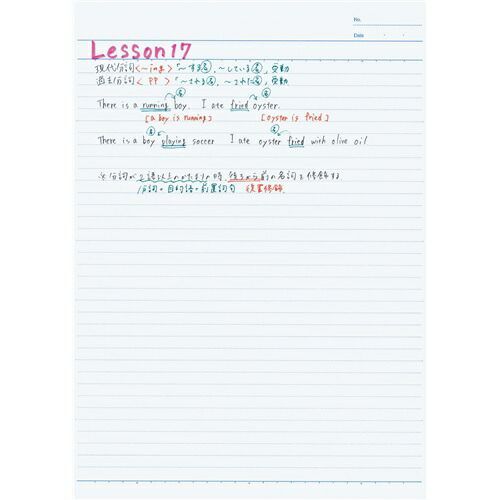 No.
Date
Lesson 17
現代分詞<~ing>「~する名, ~している名, 受動
過去分詞< PP >「~される名, ~された名, 受動
There is a running boy. I ate fried oyster.
[a boy is running] [oyster is fried]
There is a boy playing soccer I ate oyster fried with olive oil
※分詞が2語以上のかたまりの時, 後ろから前の名詞を修飾する
分詞+目的語+前置詞句 後置修飾